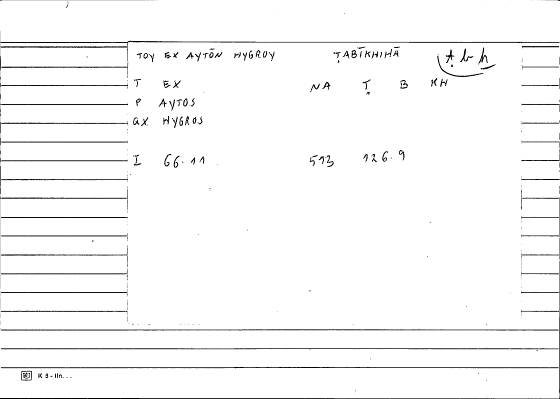 TOY EX AYTŌN HYGROY ṬABĪKHIHĀ Ṭ b ḫ
T EX NA Ṭ B KH
P AYTOS
GX HYGROS
I 66.11 513 126.9
K 9 - IIn...